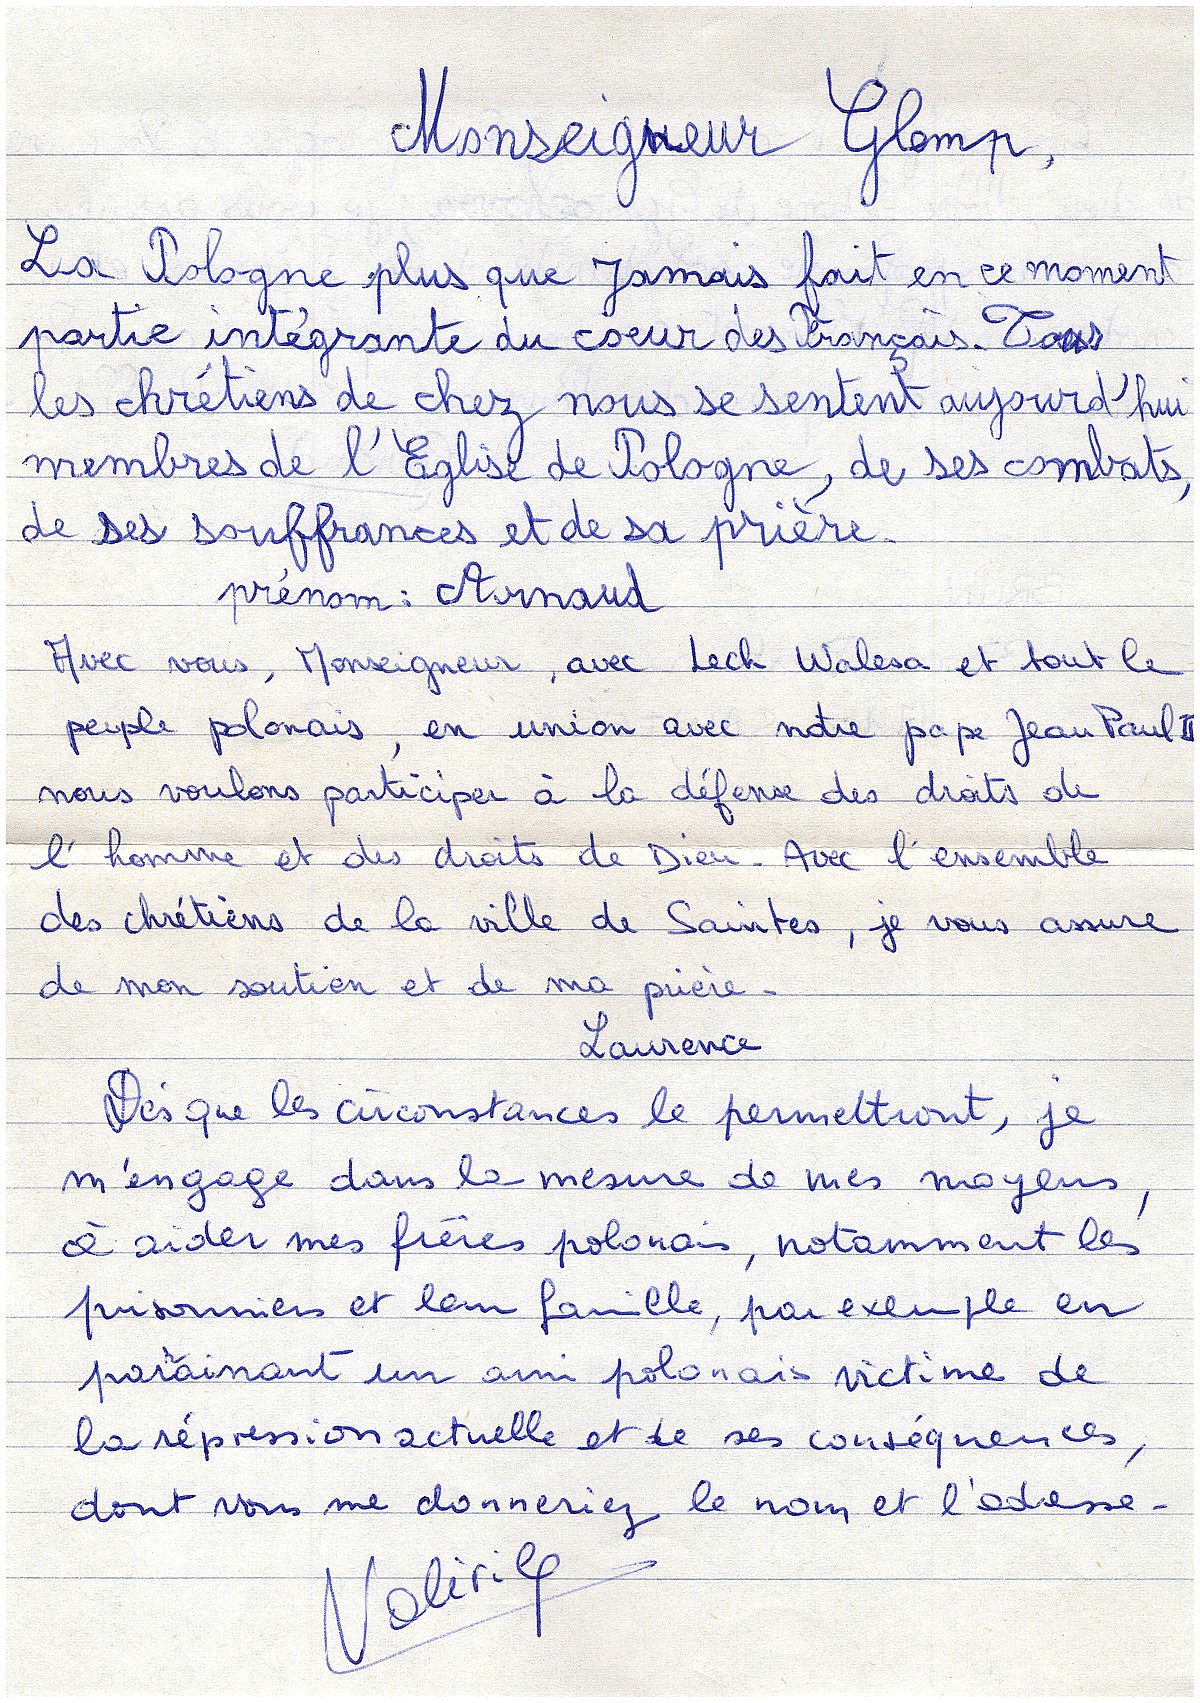 Monseigneur Glemp,
La Pologne plus que Jamais fait en ce moment
partie intégrante du coeur des Français. Tous
les chrétiens de chez nous se sentent aujourd'hui
membres de l'Eglise de Pologne, de ses combats,
de ses souffrances et de sa prière.
prénom : Arnaud
Avec vous, Monseigneur, avec Lech Walesa et tout le
peuple polonais, en union avec notre pape Jean Paul II
nous voulons participer à la défense des droits de
l'homme et des droits de Dieu - Avec l'ensemble
des chrétiens de la ville de Saintes, je vous assure
de mon soutien et de ma prière -
Laurence
Dès que les circonstances le permettront, je
m'engage dans la mesure de mes moyens,
à aider mes frères polonais, notamment les
prisonniers et leur famille, par exemple en
parrainant un ami polonais victime de
la répression actuelle et de ses conséquences,
dont vous me donneriez le nom et l'adesse -